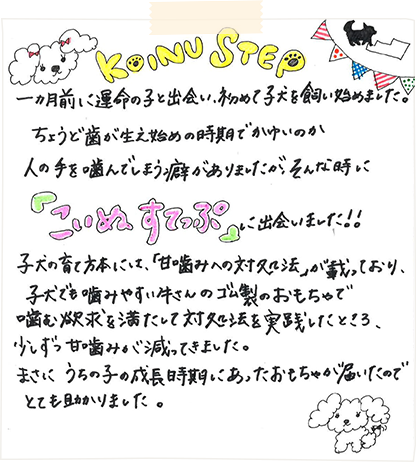 KOINU STEP
一カ月前に運命の子と出会い、初めて子犬を飼い始めました。
ちょうど歯が生え始めの時期でかゆいのか
人の手を噛んでしまう癖がありましたが、そんな時に
『こいぬすてっぷ』に出会いました!!
子犬の育て方本にも、「甘噛みへの対処法」が載っており、
子犬でも噛みやすい牛さんのゴム製のおもちゃで
噛む欲求を満たして対処法を実践したところ、
少しずつ甘噛みが減ってきました。
まさにうちの子の成長時期にあったおもちゃが届いたので
とても助かりました。